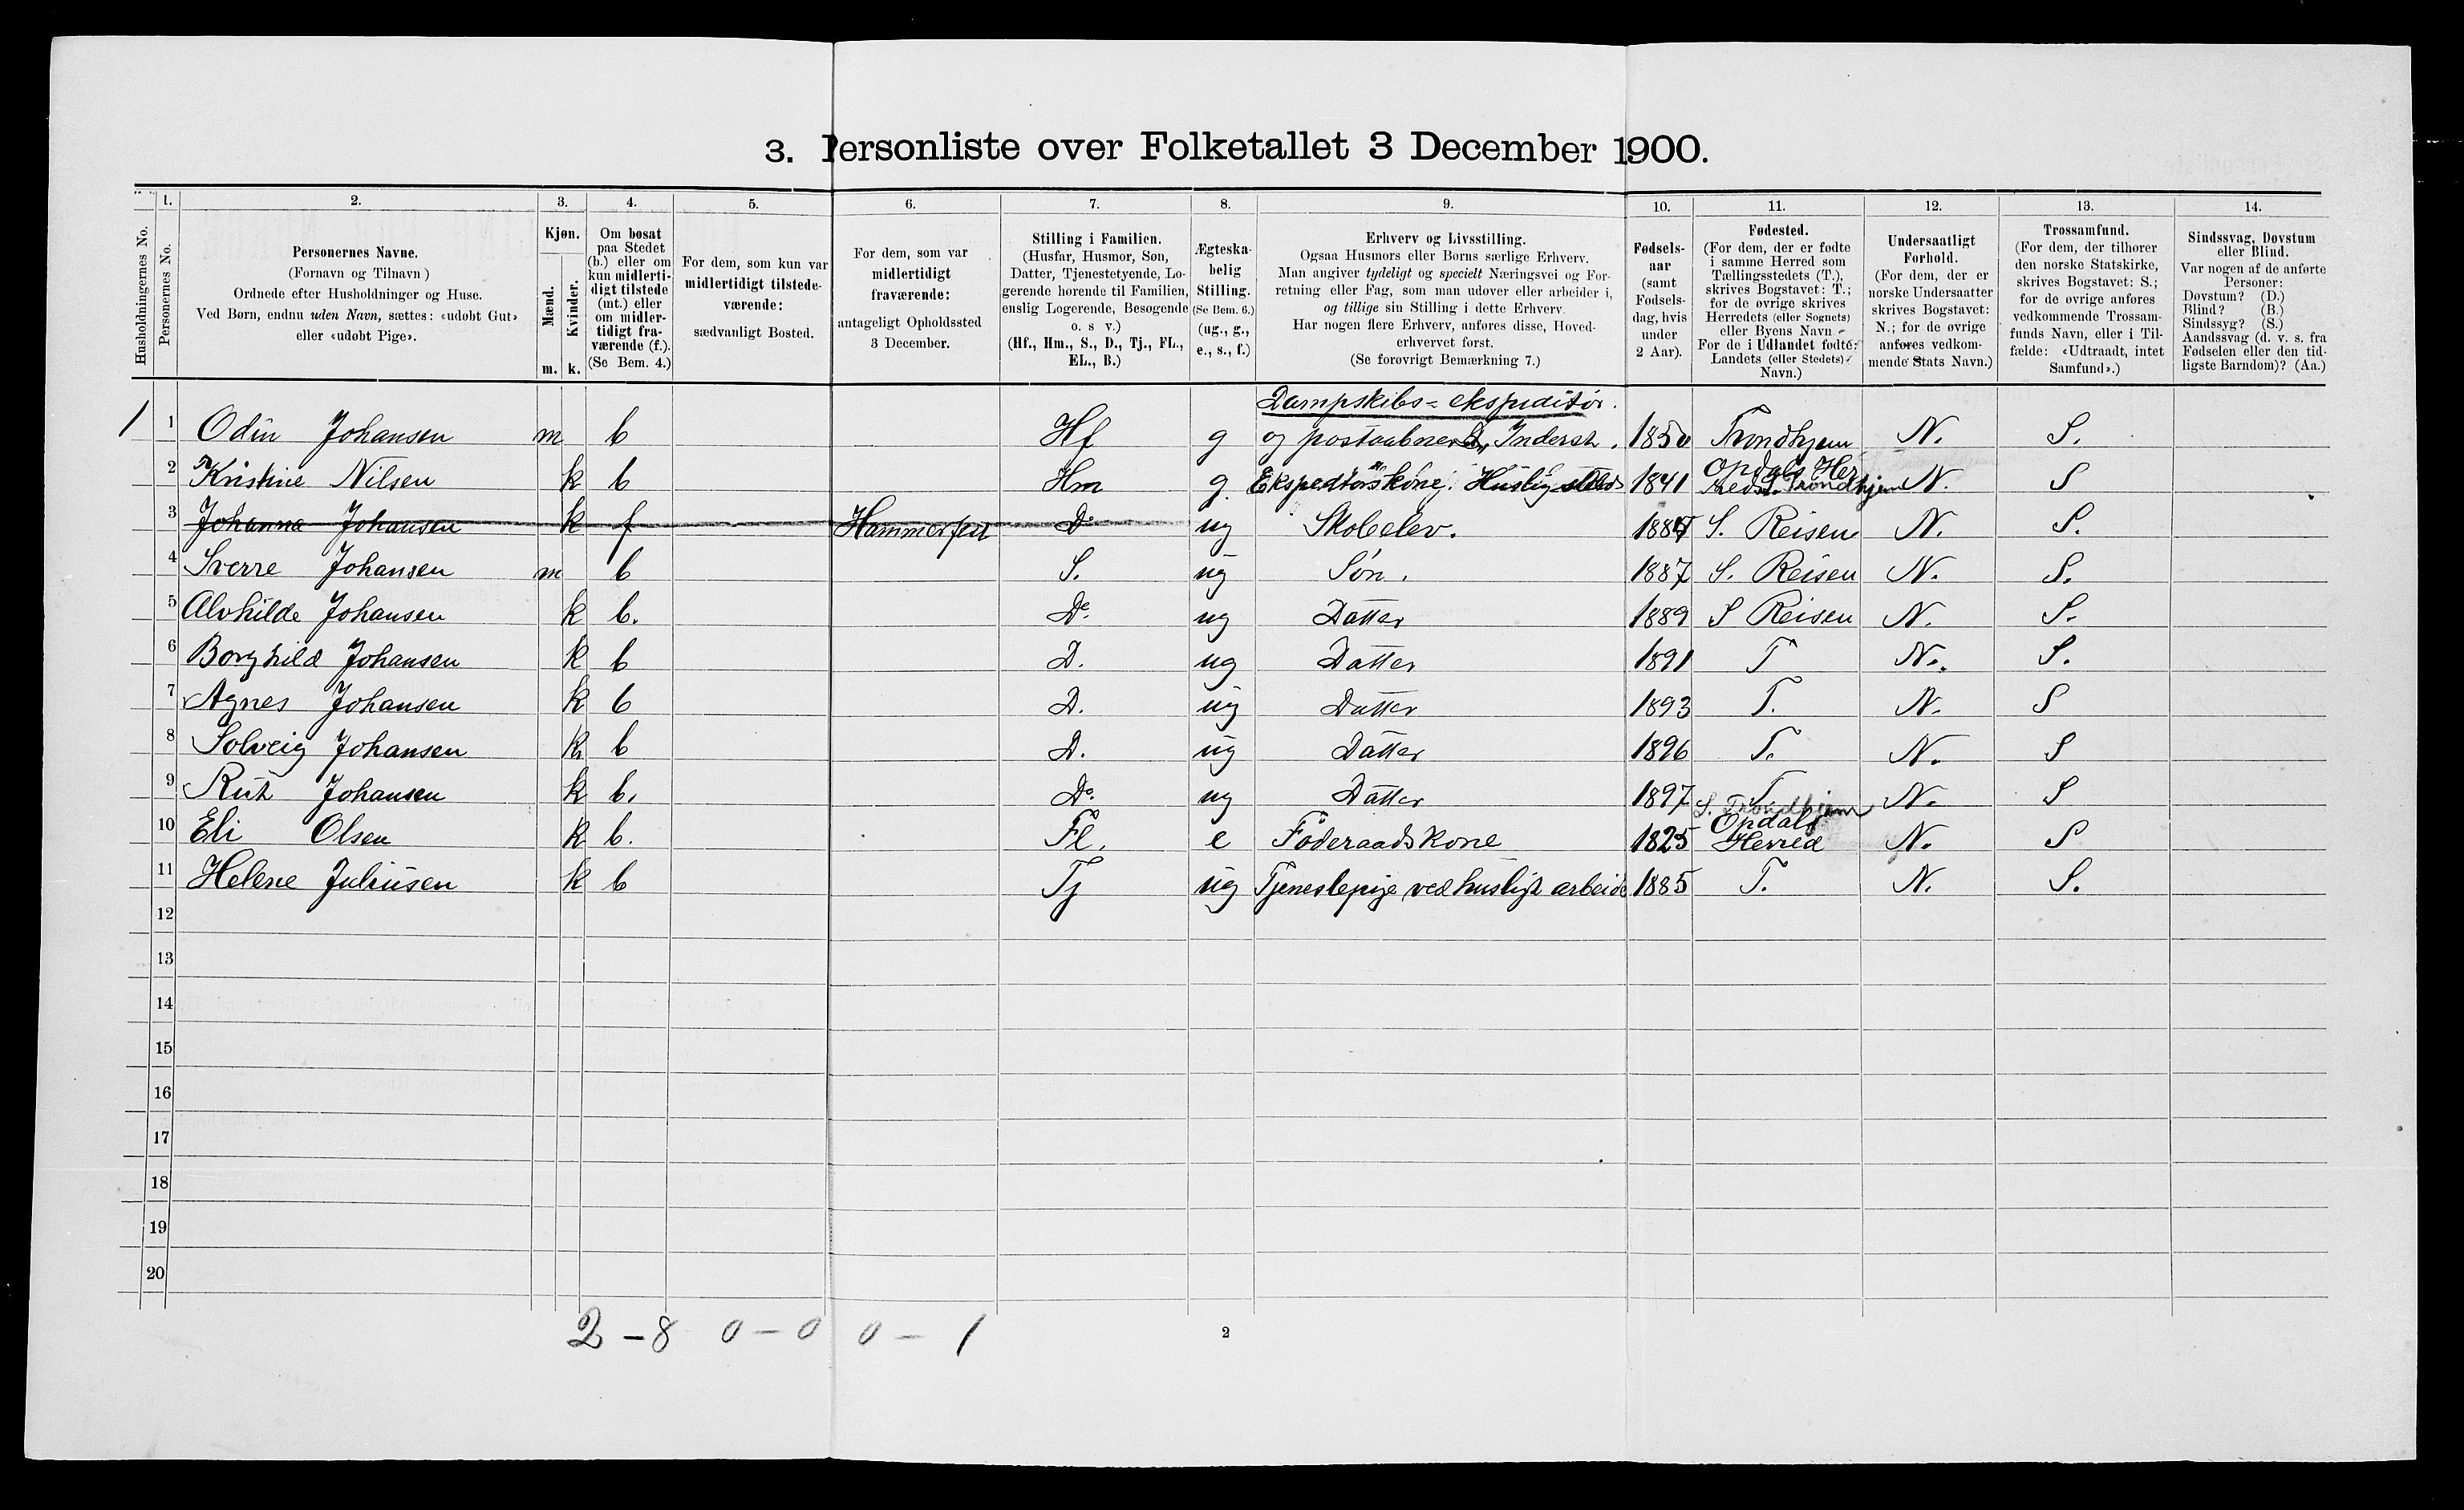 3. Personliste over Folketallet 3 December 1900.
1. 2. 3. 4. 5. 6. 7. 8. 9. 10. 11. 12. 13. 14.
Husholdningernes No.
Personernes No.
Personernes Navne.
(Fornavn og Tilnavn)
Ordnede efter Husholdninger og Huse.
Ved Børn, endnu uden Navn, sættes: «udøbt Gut»
eller «udøbt Pige».
Kjøn.
Mænd.
Kvinder.
m. k.
Om bosat
paa Stedet
(b.) eller om
kun midlerti-
digt tilstede
(mt.) eller
om midler-
tidigt fra-
værende (f.).
(Se Bem. 4.)
For dem, som kun var
midlertidigt tilstede-
værende:
sædvanligt Bosted.
For dem, som var
midlertidigt
fraværende:
antageligt Opholdssted
3 December.
Stilling i Familien.
(Husfar, Husmor, Søn,
Datter, Tjenestetyende, Lo-
gerende hørende til Familien,
enslig Logerende, Besøgende
o. s v.)
(Hf., Hm., S., D., Tj., FL.,
EL., B.)
Ægteska-
belig
Stilling.
(Se Bem. 6.)
(ug., g.,
e., s., f.)
Erhverv og Livsstilling.
Ogsaa Husmors eller Børns særlige Erhverv.
Man angiver tydeligt og specielt Næringsvei og For-
retning eller Fag, som man udøver eller arbeider i,
og tillige sin Stilling i dette Erhverv.
Har nogen flere Erhverv, anføres disse, Hoved-
erhvervet først.
(Se forøvrigt Bemærkning 7.)
Fødsels-
aar
(samt
Fødsels-
dag, hvis
under
2 Aar).
Fødested.
(For dem, der er fødte
i samme Herred som
Tællingsstedets (T.),
skrives Bogstavet: T.;
for de øvrige skrives
Herredets (eller Sognets)
eller Byens Navn.
For de i Udlandet fødte:
Landets (eller Stedets)
Navn.)
Undersaatligt
Forhold.
(For dem, der er
norske Undersaatter
skrives Bogstavet:
N.; for de øvrige
anføres vedkom-
mende Stats Navn.)
Trossamfund.
(For dem, der tilhører
den norske Statskirke,
skrives Bogstavet: S.;
for de øvrige anføres
vedkommende Trossam-
funds Navn, eller i Til-
fælde: «Udtraadt, intet
Samfund».)
Sindssvag, Døvstum
eller Blind.
Var nogen af de anførte
Personer:
Døvstum? (D.)
Blind? (B.)
Sindssyg? (S.)
Aandssvag (d. v. s. fra
Fødselen eller den tid-
ligste Barndom)? (Aa.)
Dampskibs=ekspeditør.
1 1 Odin Johansen m b Hf g og postaabner, Indersk. 1850 Trondhjem N. S.
Opdals Her
2 Kristine Nilsen k b Hm g. Ekspeditørskone. Huslig 1841 red S. Trondhjem N. S
3 Johanna Johansen k f Hammerfest D. ug Skoleelev. 1884 S. Reisen N. S.
4 Sverre Johansen m b S. ug Søn. 1887 S. Reisen N. S.
5 Alvhilde Johansen k b. D. ug Datter 1889 S Reisen N. S.
6 Borghild Johansen k b D. ug Datter 1891 T N. S.
7 Agnes Johansen k b D. ug Datter 1893 T. N. S
8 Solveig Johansen k b D. ug Datter 1896 T. N. S
9 Rut Johansen k b. D. ug Datter 1897 T. N. S
S. Trondhjem
Opdals
10 Eli Olsen k b. Fl. e Føderaadskone 1825 Herred N. S
11 Helene Juliusen k b Tj ug Tjenestepige ved husligt arbeide 1885 T. N. S.
12
13
14
15
16
17
18
19
20
2 – 8 0 – 0 0 – 1
2